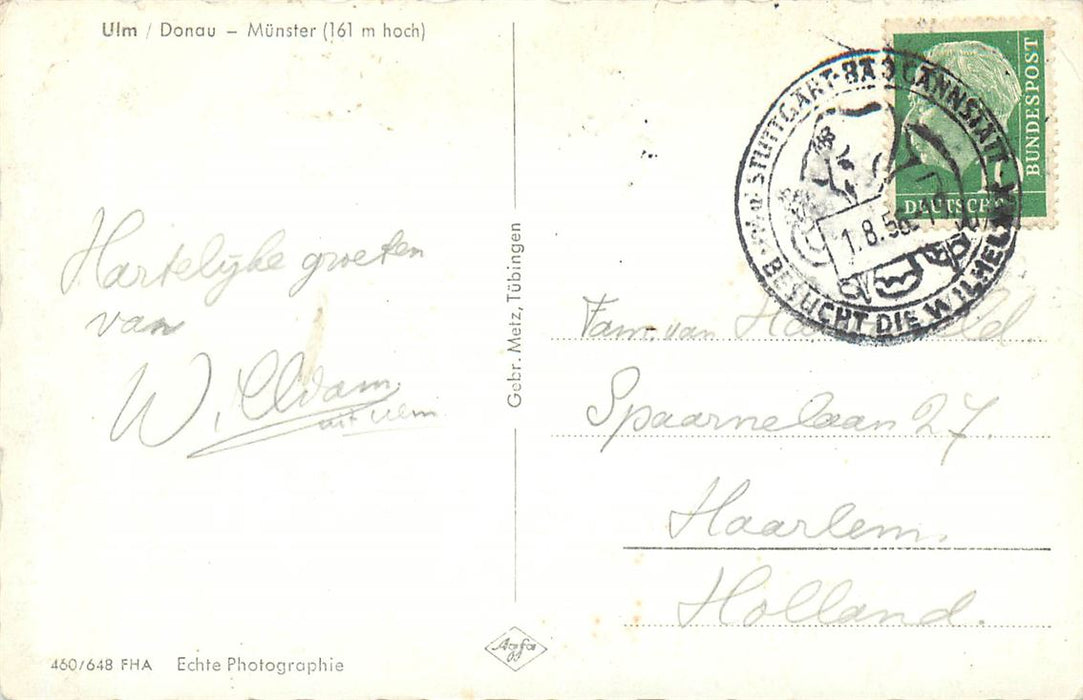 Ulm / Donau – Münster (161 m hoch)
Hartelijke groeten
van
W.
uit Ulm
Gebr. Metz, Tübingen
460/648 FHA Echte Photographie
Agfa
BUNDESPOST
DEUTSCHE
STUTTGART-BAD CANNSTATT
1.8.58
BESUCHT DIE WILHELMA
Fam. van
Spaarnelaan 27.
Haarlem.
Holland.